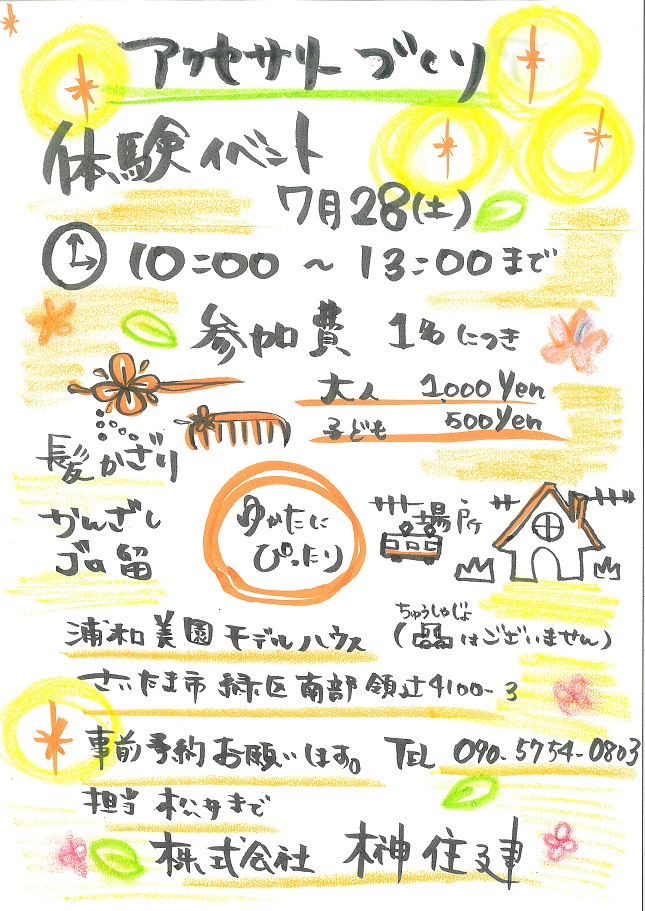 アクセサリーづくり
体験イベント
7月28(土)
10:00～13:00まで
参加費 1名につき
大人 1,000Yen
子ども 500Yen
髪かざり
かんざし
ゴム留
ゆかたに
ぴったり
場所
浦和美園モデルハウス
ちゅうしゃじょ
(はございません)
さいたま市緑区南部領辻4100-3
事前予約お願いします。 TEL 090-5754-0803
担当 松井まで
株式会社 榊住建